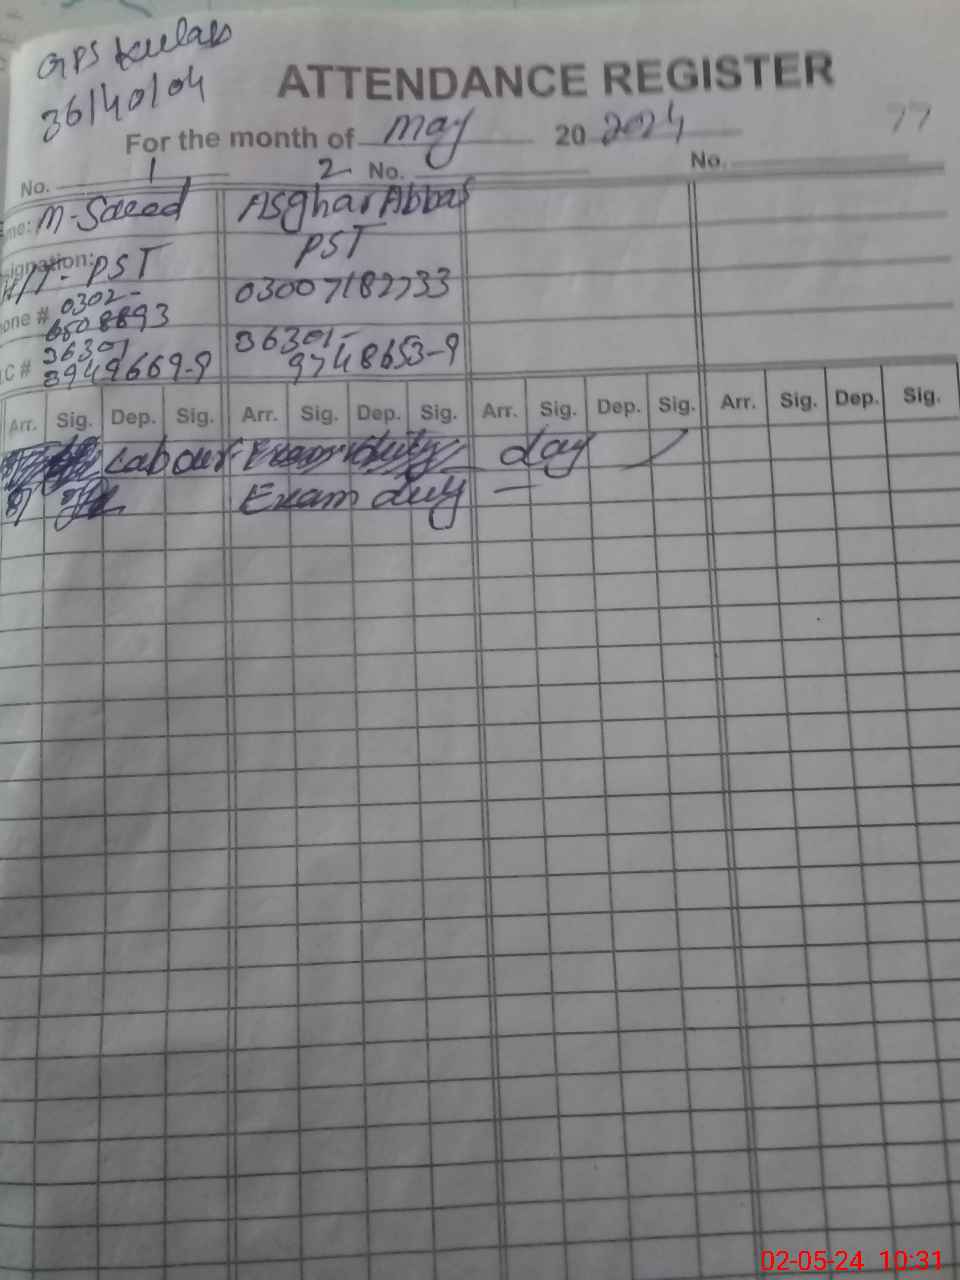 GPS
36140104
ATTENDANCE REGISTER
For the month of May 20 2024
77
No. 1 2 No. No.
me: M-Saeed Asghar Abbas
signation: PST PST
one # 0302- 6508893 03007182733
C # 36301 8949669-9 36301- 9748653-9
Arr. Sig. Dep. Sig. Arr. Sig. Dep. Sig. Arr. Sig. Dep. Sig. Arr. Sig. Dep. Sig.
Labour Exam duty day
Exam duty
02-05-24 10:31